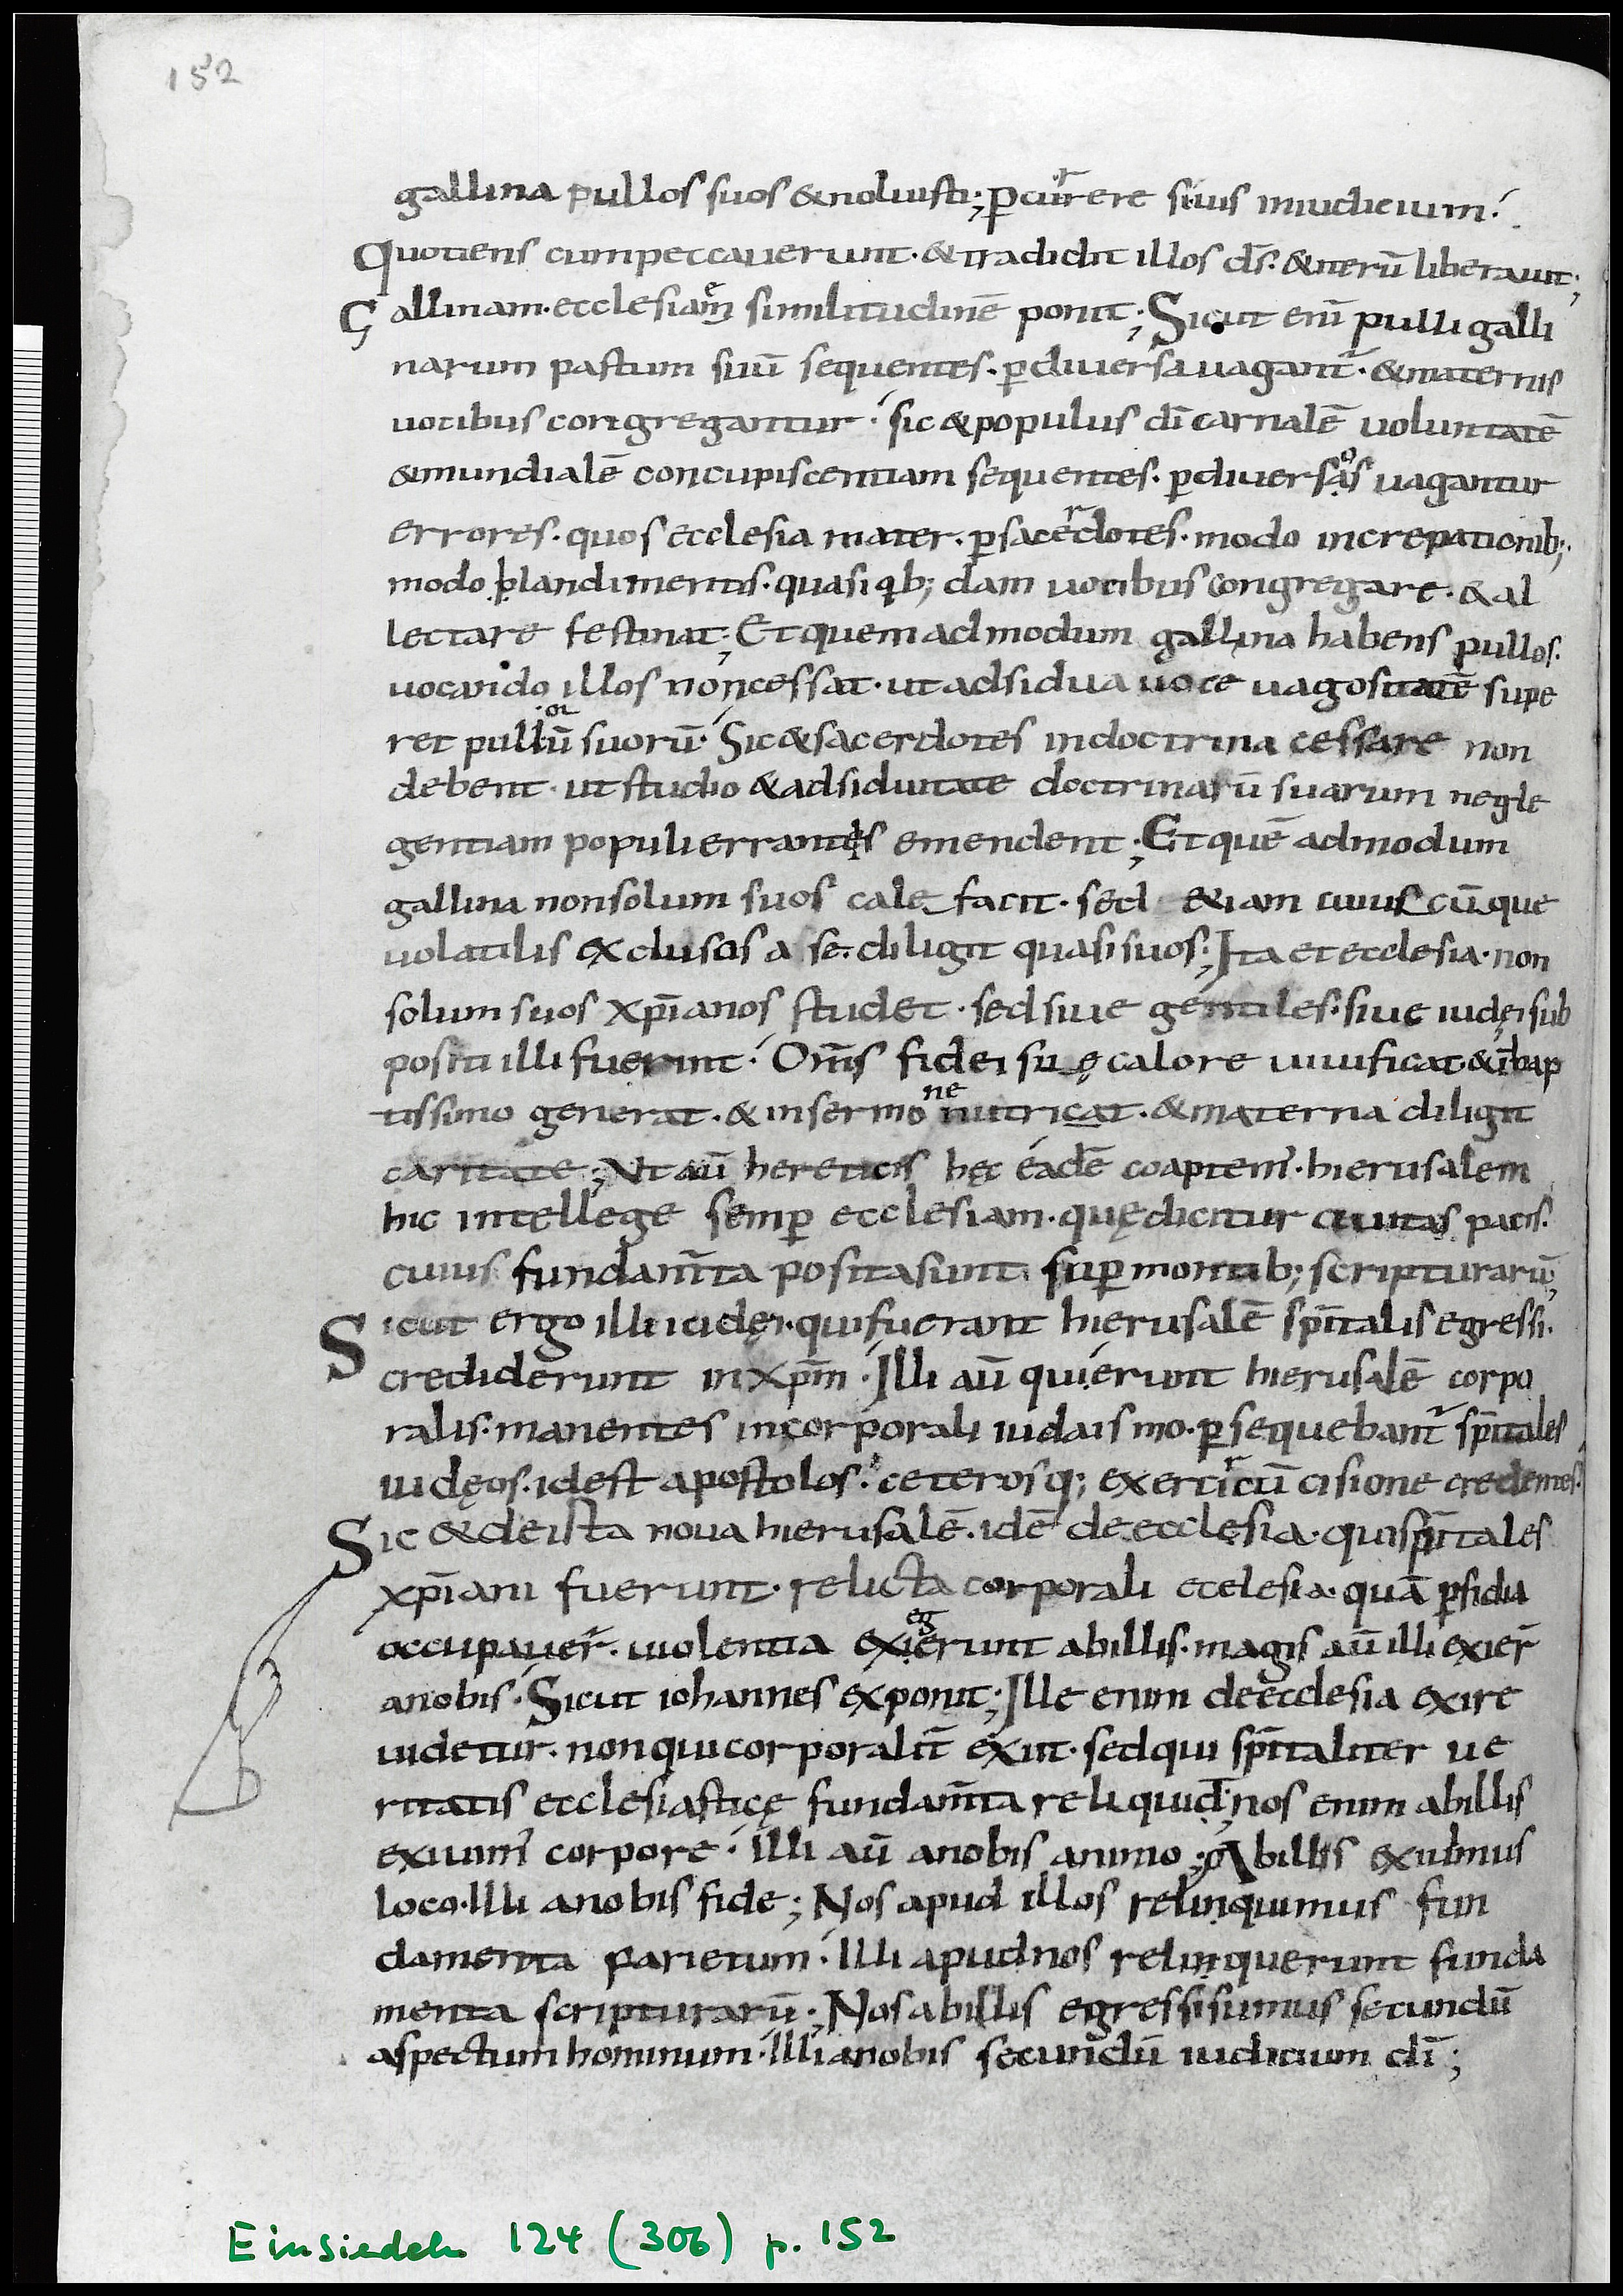 152
gallina pullos suos & noluisti; ꝑcurrere siuis iniudicium.
Quotiens cum peccauerunt. & tradidit illos ds̄. & iterū liberauit;
Gallinam. ecclesiam̄ similitudinē ponit; Sicut enī pulli galli
narum pastum suū sequentes. ꝑ diuersa uagant̄. & maternis
uocibus congregantur. sic & populus dī carnalē uoluntatē
& mundialē concupiscentiam sequentes. ꝑ diuersos uagantur
errores. quos ecclesia mater. ꝑ sacerdotes. modo increpationib;.
modo blandimentis. quasi qb; dam uocibus congregare. & al
lectare festinat; Et quem admodum gallina habens pullos.
uocando illos non cessat. ut adsidua uoce uagositatē supe
ret pullorū suorū. Sic & sacerdotes in doctrina cessare non
debent. ut studio & adsiduitate doctrinarū suarum negle
gentiam populi errantis emendent; Et quē admodum
gallina non solum suos cale facit. sed &iam cuius cūque
uolatilis exclusos a se. diligit quasi suos; Ita et ecclesia. non
solum suos xp̄ianos studet. sed siue gentiles. siue iudęi sub
positi illi fuerint. Om̄s fidei suę calore uiuificat. & ī bap
tissimo generat. & in sermone nutricat. & materna diligit
caritate; Ut aū hereticis hęc eadē coaptem'. hierusalem
hic intellege semꝑ ecclesiam. quę dicitur ciuitas pacis.
cuius fundam̄ta posita sunt. suꝑ montib; scripturarū;
Sicut ergo illi iudęi. qui fuerant hierusalē sp̄italis egressi.
crediderunt in xp̄m. Illi aū qui erunt hierusalē corpo
ralis. manentes in corporali iudaismo. ꝑ sequebant̄ sp̄itales
iudęos. idest apostolos. ceterosq; ex circūcisione credentes.
Sic & de ista noua hierusalē. idē de ecclesia. qui sp̄itales
xp̄iani fuerunt. relicta corporali ecclesia. quā ꝑfidia
occupauer̄. uiolentia exierunt ab illis. magis aū illi exier̄
a nobis. Sicut iohannes exponit; Ille enim de ecclesia exire
uidetur. non qui corporalit̄ exiit. sed qui sp̄italiter ue
ritatis ecclesiasticę fundam̄ta reliquid; nos enim ab illis
exiuim' corpore. illi aū a nobis animo; Ab illis exiuimus
loco. Illi a nobis fide; Nos apud illos relinquimus fun
damenta parietum. illi apud nos relinquerunt funda
menta scripturarū; Nos ab illis egressi sumus secundū
aspectum hominum. Illi a nobis secundū iudicium dī;
Einsiedeln 124 (306) p. 152